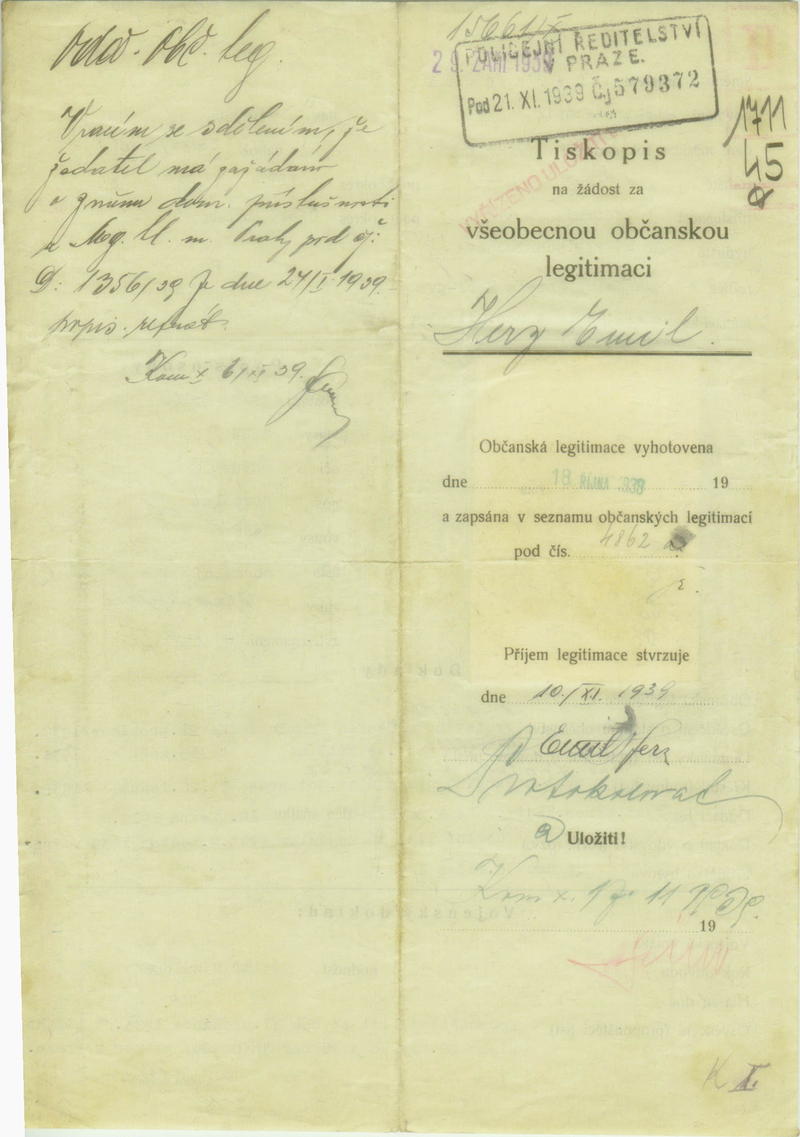 Odd. obč. leg.
Vracím se sdělením, že
žadatel má zažádáno
o změnu dom. příslušnosti
u Mag. hl. m. Prahy pod čj:
D: 1356/39 Je dne 24/I 1939.
Kom X 6/XI 39.
1566
29. ZÁŘÍ 1939
POLICEJNÍ ŘEDITELSTVÍ
V PRAZE.
Pod 21. XI. 1939 Čj 579372
1711
45
VYŘÍZENO ULOŽ
Tiskopis
na žádost za
všeobecnou občanskou
legitimaci
Herz Emil.
Občanská legitimace vyhotovena
dne 18 ŘÍJNA 1939 19
a zapsána v seznamu občanských legitimací
pod čís. 4862
Příjem legitimace stvrzuje
dne 10./XI. 1939
Emil Herz
Protokoloval
a Uložiti!
Kom X. 11 1939.
19
K I.